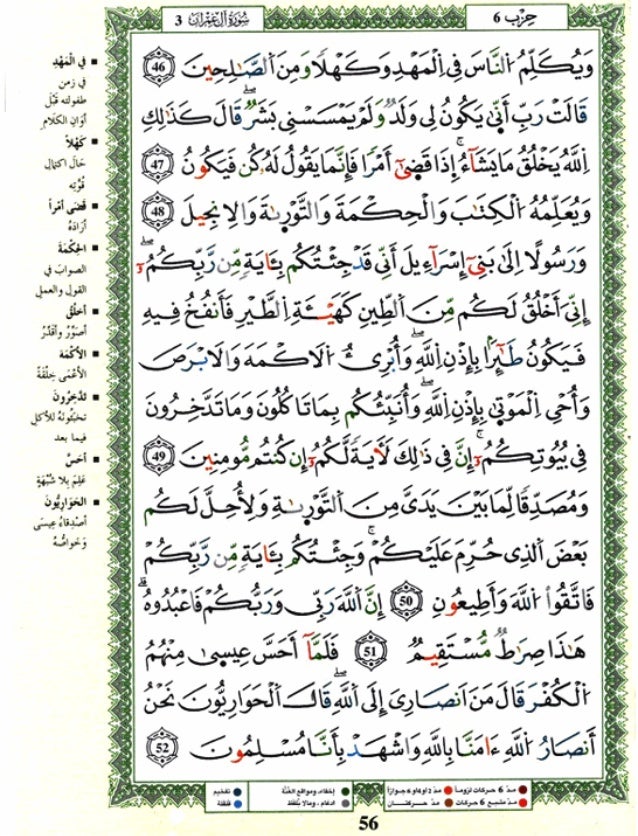 حِزْب 6
سُورَةُ آلِ عِمْرَان 3
وَيُكَلِّمُ النَّاسَ فِي الْمَهْدِ وَكَهْلًا وَمِنَ الصَّٰلِحِينَ 46
قَالَتْ رَبِّ أَنّٰي يَكُونُ لِي وَلَدٌ وَلَمْ يَمْسَسْنِي بَشَرٌ قَالَ كَذَٰلِكِ
اِللَّهُ يَخْلُقُ مَا يَشَآءُ إِذَا قَضٰىٓ أَمْرًا فَإِنَّمَا يَقُولُ لَهُۥ كُن فَيَكُونُ 47
وَيُعَلِّمُهُ الْكِتَٰبَ وَالْحِكْمَةَ وَالتَّوْرِىٰةَ وَالِانجِيلَ 48
وَرَسُولًا اِلَىٰ بَنِيٓ إِسْرَآءِيلَ أَنِّي قَدْ جِئْتُكُم بِـَٔايَةٍ مِّن رَّبِّكُمُۥٓ
إِنِّيَ أَخْلُقُ لَكُم مِّنَ اَلطِّينِ كَهَيْـَٔةِ اِلطَّيْرِ فَأَنفُخُ فِيهِ
فَيَكُونُ طَٰٓئِرًا بِإِذْنِ اِللَّهِ وَأُبْرِئُ الَاكْمَهَ وَالَابْرَصَ
وَأُحْيِ اِلْمَوْتٰي بِإِذْنِ اِللَّهِ وَأُنَبِّئُكُم بِمَا تَاكُلُونَ وَمَا تَدَّخِرُونَ
فِي بُيُوتِكُمُۥٓ إِنَّ فِي ذَٰلِكَ لَأَيَةً لَّكُمُۥٓ إِن كُنتُم مُّومِنِينَ 49
وَمُصَدِّقًا لِّمَا بَيْنَ يَدَيَّ مِنَ اَلتَّوْرِىٰةِ وَلِأُحِلَّ لَكُم
بَعْضَ اَلَّذِي حُرِّمَ عَلَيْكُمْ وَجِئْتُكُم بِـَٔايَةٍ مِّن رَّبِّكُمْ
فَاتَّقُوا۟ اللَّهَ وَأَطِيعُونِ 50 إِنَّ اَللَّهَ رَبِّي وَرَبُّكُمْ فَاعْبُدُوهُ
هَٰذَا صِرَٰطٌ مُّسْتَقِيمٌ 51 فَلَمَّآ أَحَسَّ عِيسٰي مِنْهُمُ
اُلْكُفْرَ قَالَ مَنَ اَنصَارِيَ إِلَى اَللَّهِ قَالَ اَلْحَوَارِيُّونَ نَحْنُ
أَنصَارُ اُللَّهِ ءَامَنَّا بِاللَّهِ وَاشْهَدْ بِأَنَّا مُسْلِمُونَ 52
■ فِي الْمَهْدِ
في زمن
طفولته قَبْلَ
أوَانِ الكَلَامِ
■ كَهْلاً
حَالَ اكْتِمَالِ
قُوَّتِهِ
■ قَضَى أَمْراً
أَرَادَهُ
■ الحِكْمَةَ
الصوابَ في
القول والعملِ
■ أَخْلُقُ
أُصَوِّرُ وأُقَدِّرُ
■ الأَكْمَهَ
الأَعْمَى خِلْقَةً
■ تَدَّخِرُونَ
تخبّئُونَهُ للأكلِ
فيما بعد
■ أَحَسَّ
عَلِمَ بِلا شُبْهَةٍ
■ الحَوَارِيُّونَ
أَصْدِقاءُ عِيسَى
وَخَواصُّهُ
مدّ 6 حركات لزوماً
مدّ 2 أو 4 أو 6 جوازاً
إخفاء، ومواقع الغُنَّة
تفخيم
مدّ مشبع 6 حركات
مدّ حركتان
ادغام، ومالا يُلفظ
قلقلة
56